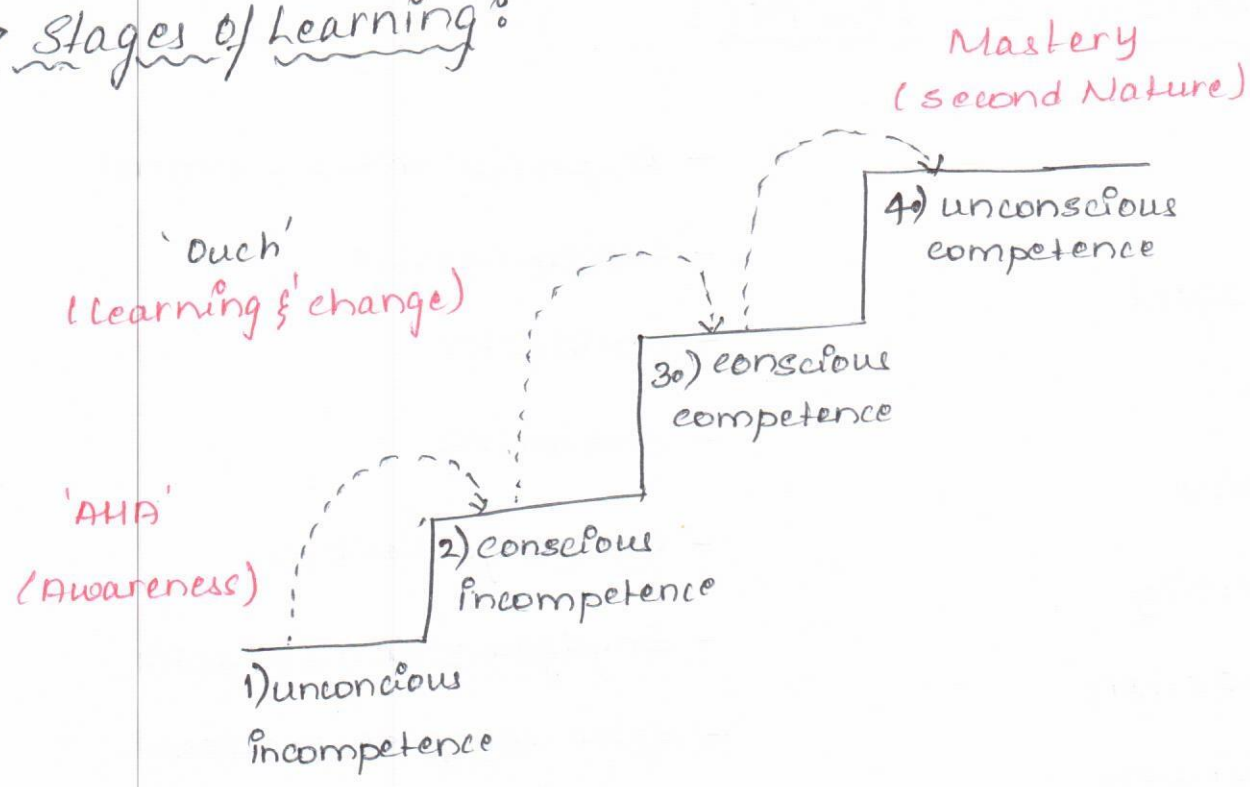 Stages of Learning:
Mastery
(second Nature)
4.) unconscious
competence
'Ouch'
(learning & change)
3.) conscious
competence
'AHA'
(Awareness)
2) conscious
incompetence
1) unconcious
incompetence